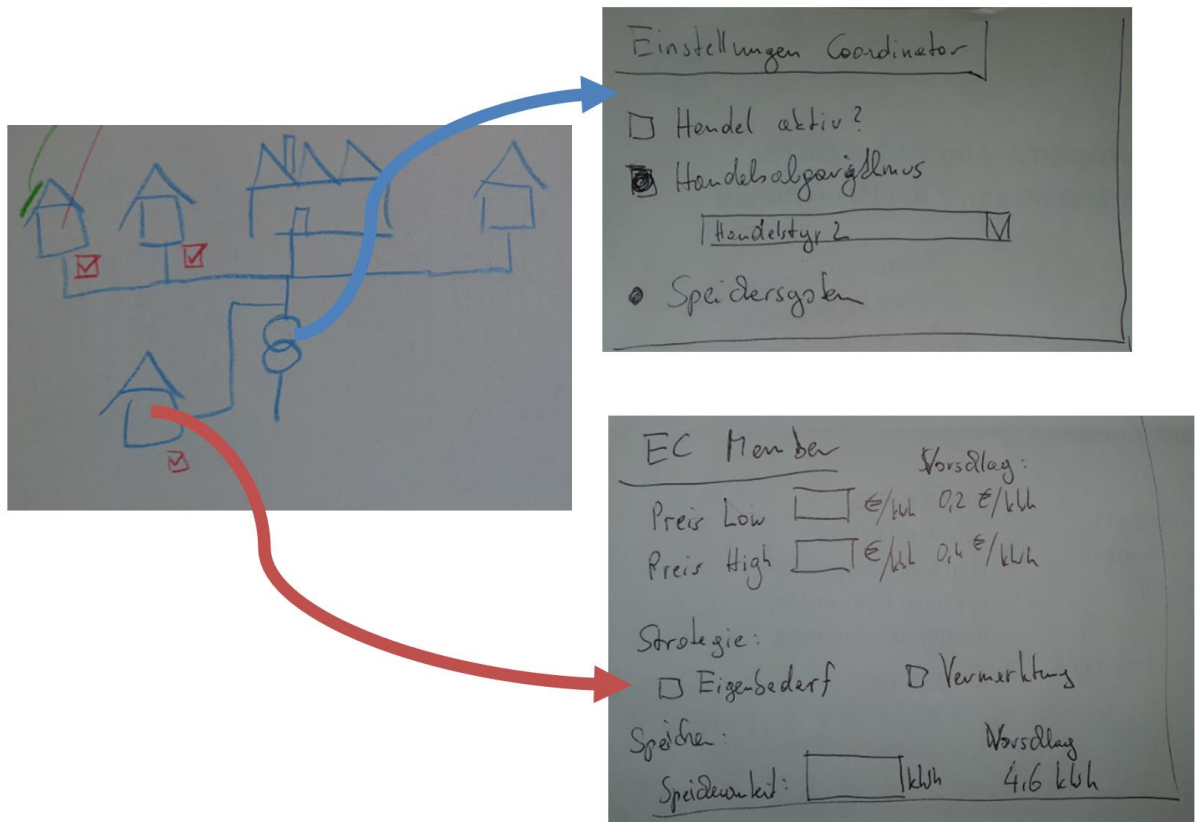 Einstellungen Coordinator
Handel aktiv?
Handelsalgorigthmus
Handelstyp 2
Speichersystem
EC Member
Vorschlag:
Preis Low €/kWh 0,2 €/kWh
Preis High €/kWh 0,4 €/kWh
Strategie:
Eigenbedarf Vermarktung
Speicher:
Vorschlag
kWh 4,6 kWh